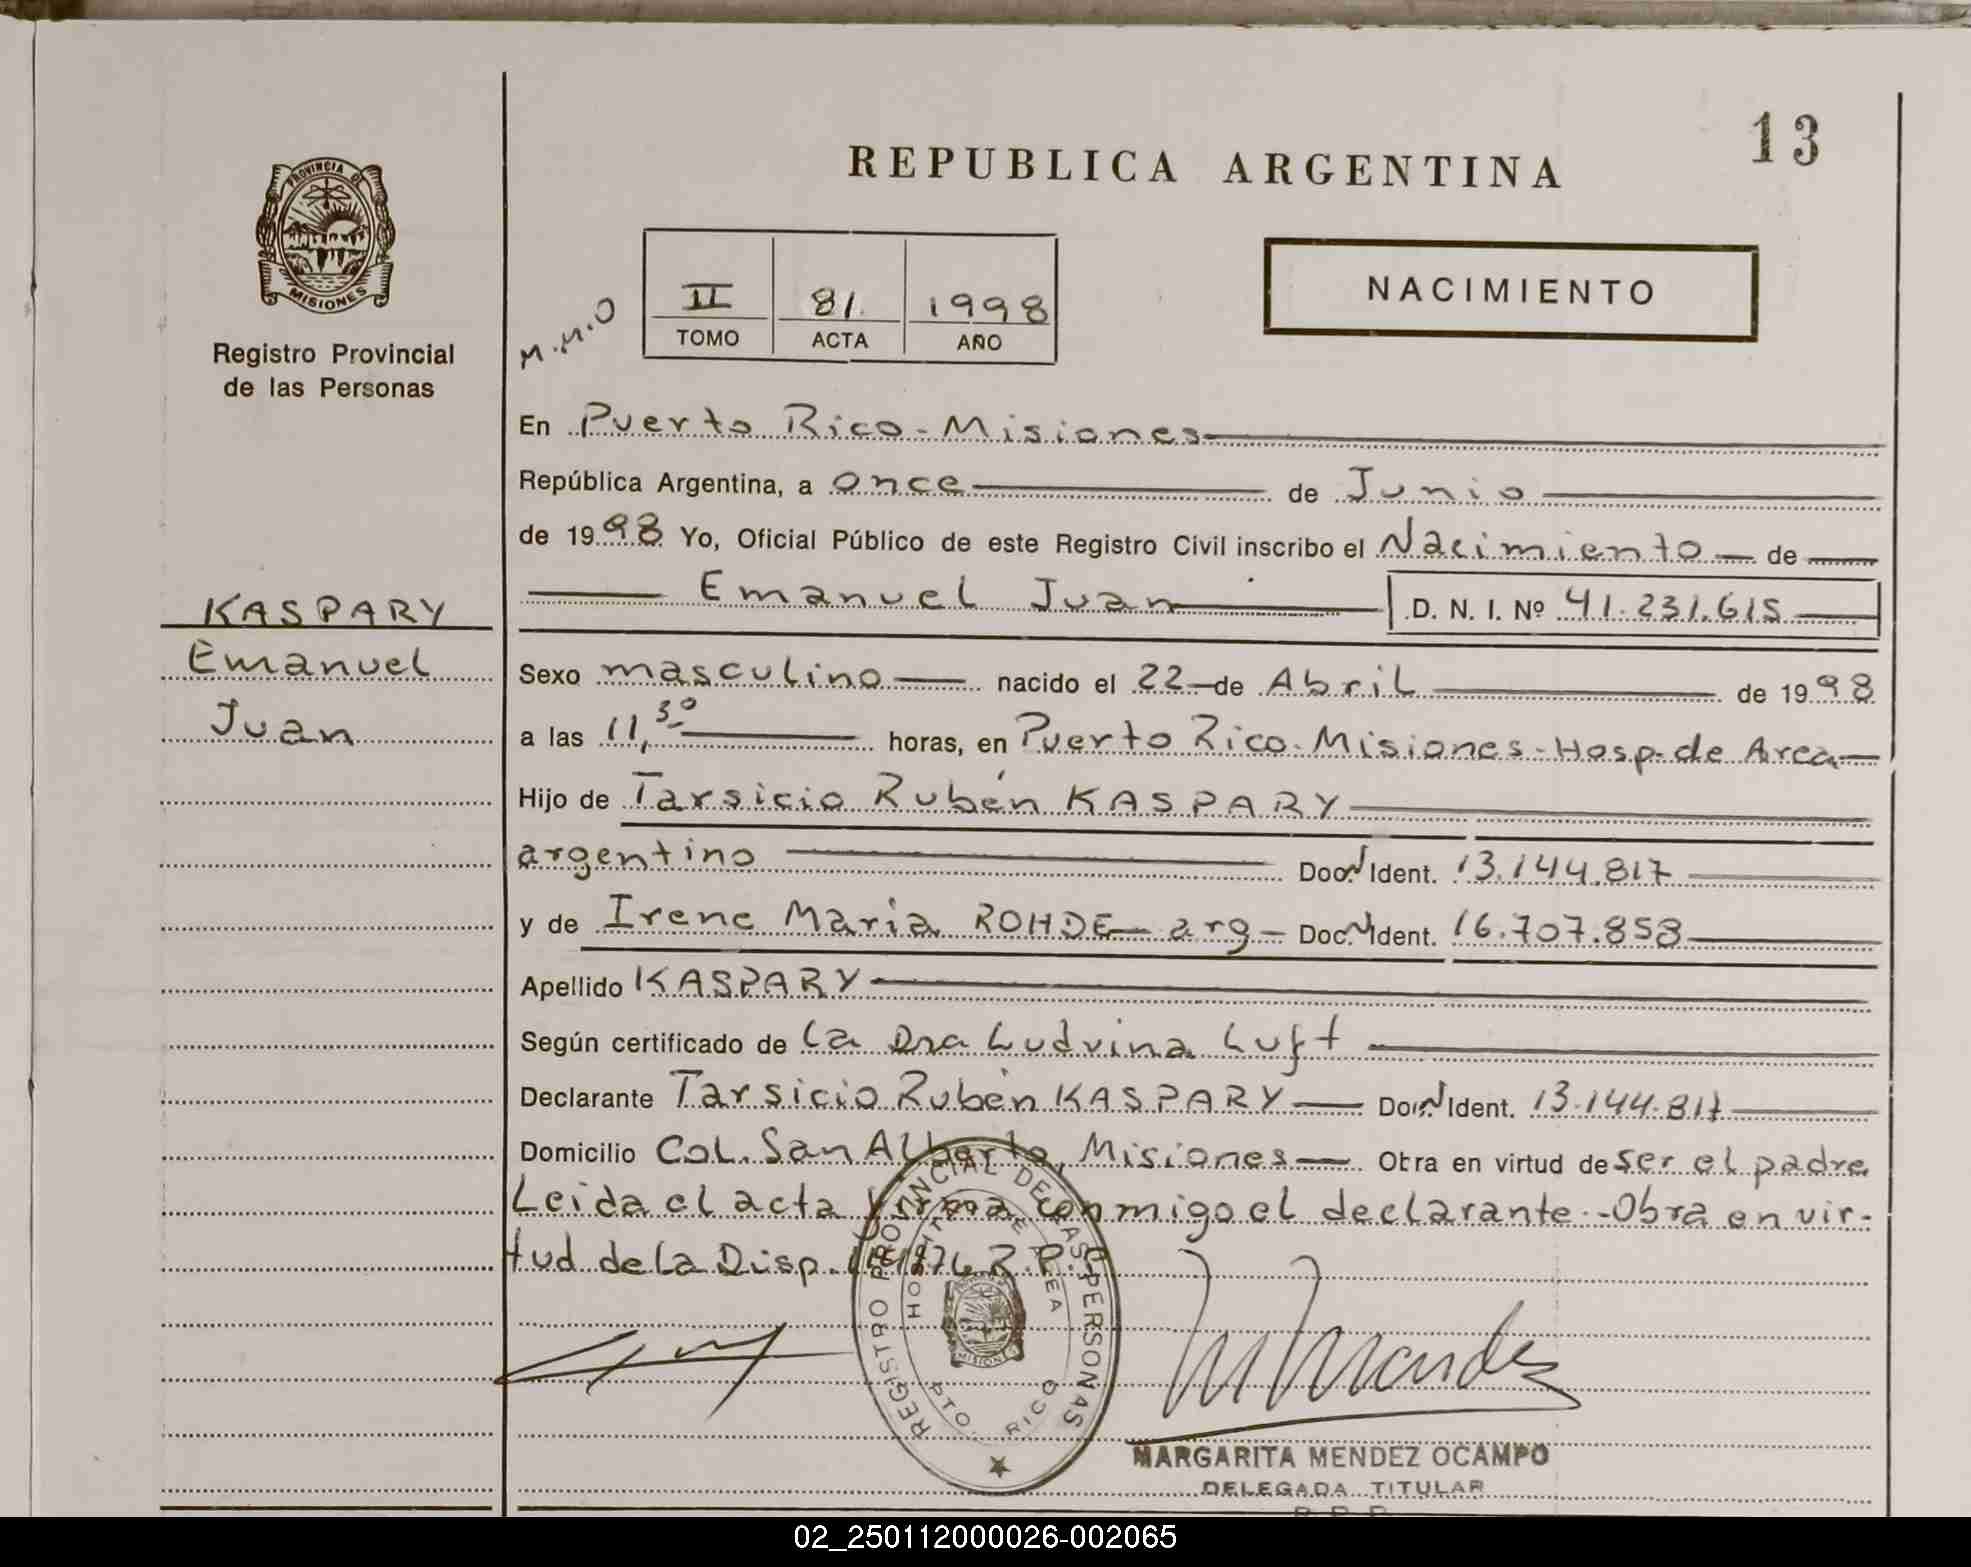 13
REPUBLICA ARGENTINA
PROVINCIA DE
MISIONES
Registro Provincial
de las Personas
M.M.O
II 81 1998
TOMO ACTA AÑO
NACIMIENTO
En Puerto Rico - Misiones
República Argentina, a once de Junio
de 1998 Yo, Oficial Público de este Registro Civil inscribo el Nacimiento de
Emanuel Juan D. N. I. Nº 41.231.615
KASPARY
Emanuel
Juan
Sexo masculino nacido el 22 de Abril de 1998
a las 11,30 horas, en Puerto Rico - Misiones - Hosp. de Area
Hijo de Tarsicio Rubén KASPARY
argentino Doc. N Ident. 13.144.817
y de Irene Maria ROHDE - arg - Doc. N Ident. 16.707.858
Apellido KASPARY
Según certificado de la Dra Ludvina Luft
Declarante Tarsicio Rubén KASPARY Doc. N Ident. 13.144.817
Domicilio Col. San Alberto, Misiones Obra en virtud de ser el padre
Leida el acta firma conmigo el declarante - Obra en vir-
tud de la Disp. R.P.P
REGISTRO PROVINCIAL DE LAS PERSONAS
HOSPITAL DE AREA
MISIONES
PTO. RICO
M Mendez
MARGARITA MENDEZ OCAMPO
DELEGADA TITULAR
R.P.P.
02_250112000026-002065